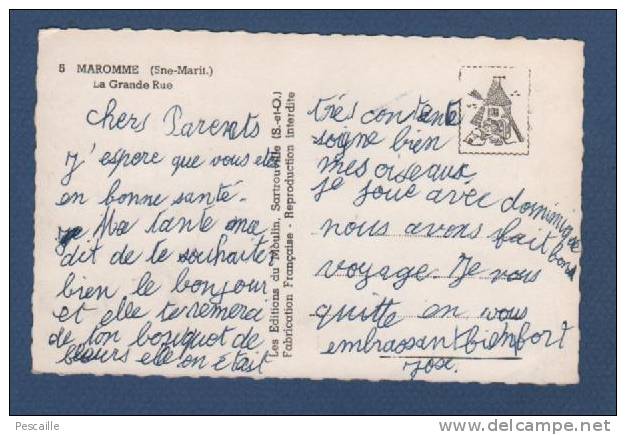 5 MAROMME (Sne-Marit.)
La Grande Rue
chers Parents
J'espere que vous ete
en bonne santé.
Ma tante ma
dit de te souhaiter
bien le bonjour
et elle te remerci
de ton bouquot de
fleurs elle on etait
Les Editions du Moulin, Sartrouville (S.-et-O.)
Fabrication Française - Reproduction interdite
très contente
soigne bien
mes oiseaux
je joue avec dominique
nous avons fait bon
voyage. Je vous
quitte en vous
embrassant bienfort
José.
Pescaille
www.delcampe.net